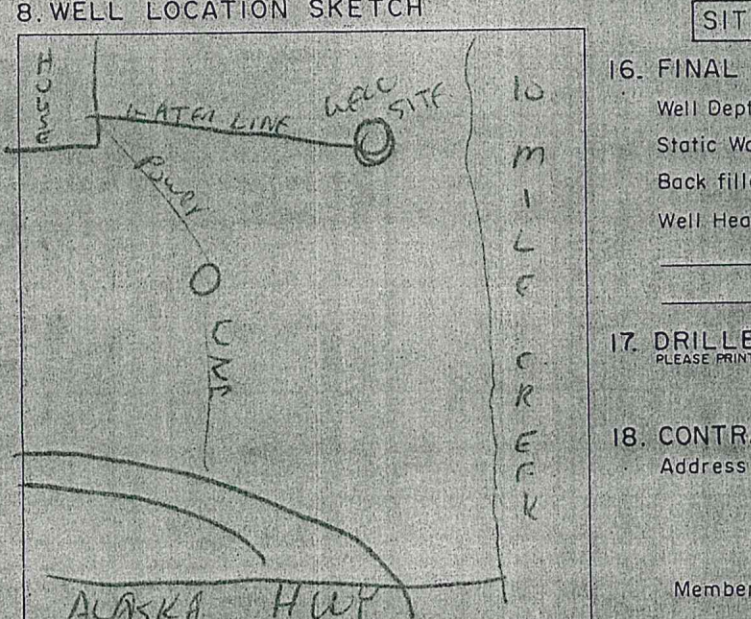 8. WELL LOCATION SKETCH
HOUSE
WATER LINE
WELL SITE
POWER
10 MILE CREEK
ALASKA HWY
SIT
16. FINAL
Well Dept
Static Wa
Back fill
Well Hea
17. DRILLE
PLEASE PRINT
18. CONTRA
Address
Member